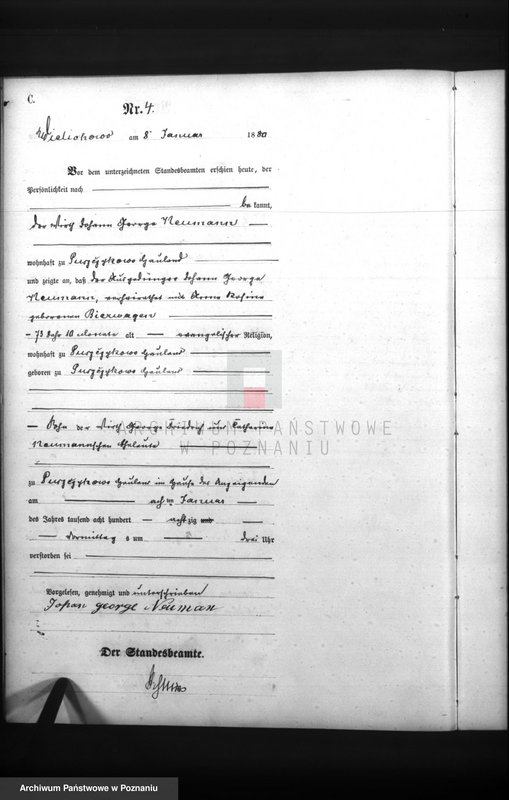 C.
Nr. 4.
Wielichowo am 8 Januar 1880
Vor dem unterzeichneten Standesbeamten erschien heute, der
Persönlichkeit nach
be kannt,
der Wirth Johann George Neumann
wohnhaft zu Puszczykowo Hauland
und zeigte an, daß der Ausgedinger Johann George
Neumann, verheirathet mit Anna Rosina
geborenen Bierwagen
73 Jahr 10 Monate alt evangelischer Religion,
wohnhaft zu Puszczykowo Hauland
geboren zu Puszczykowo Hauland
ARCHIWUM PAŃSTWOWE
W POZNANIU
Sohn der Wirth George Friedrich und Catharina
Neumannschen Eheleute
zu Puszczykowo Hauland im Hause des Anzeigenden
am achten Januar
des Jahres tausend acht hundert achtzig und
Vormittags um drei Uhr
verstorben sei
Vorgelesen, genehmigt und unterschrieben
Johan george Neuman
Der Standesbeamte.
Archiwum Państwowe w Poznaniu